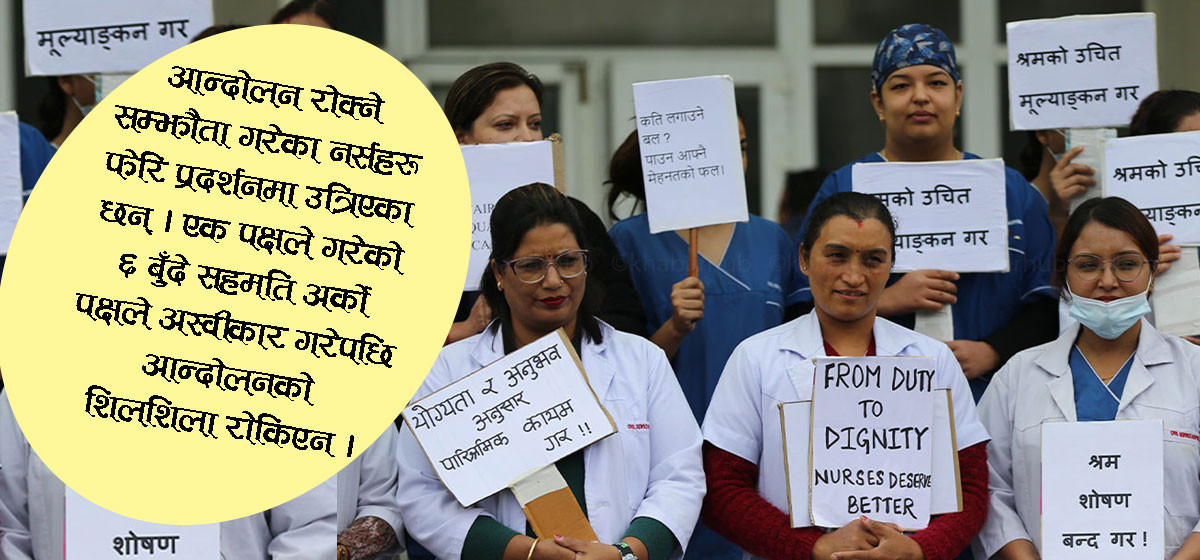 मूल्याङ्कन गर
आन्दोलन रोक्ने
सम्झौता गरेका नर्सहरू
फेरि प्रदर्शनमा उत्रिएका
छन् । एक पक्षले गरेको
६ बुँदे सहमति अर्को
पक्षले अस्वीकार गरेपछि
आन्दोलनको
शिलशिला रोकिएन ।
शोषण
योग्यता र अनुभव
अनुसार
पारिश्रमिक कायम
गर !!
कति लगाउने
बल ?
पाउन आफ्नै
मेहनतको फल।
श्रमको उचित
मूल्याङ्कन गर
श्रमको उचित
मूल्याङ्कन गर
श्रमको उचित
FROM DUTY
TO
DIGNITY
NURSES DESERVE
BETTER
श्रम
शोषण
बन्द गर !